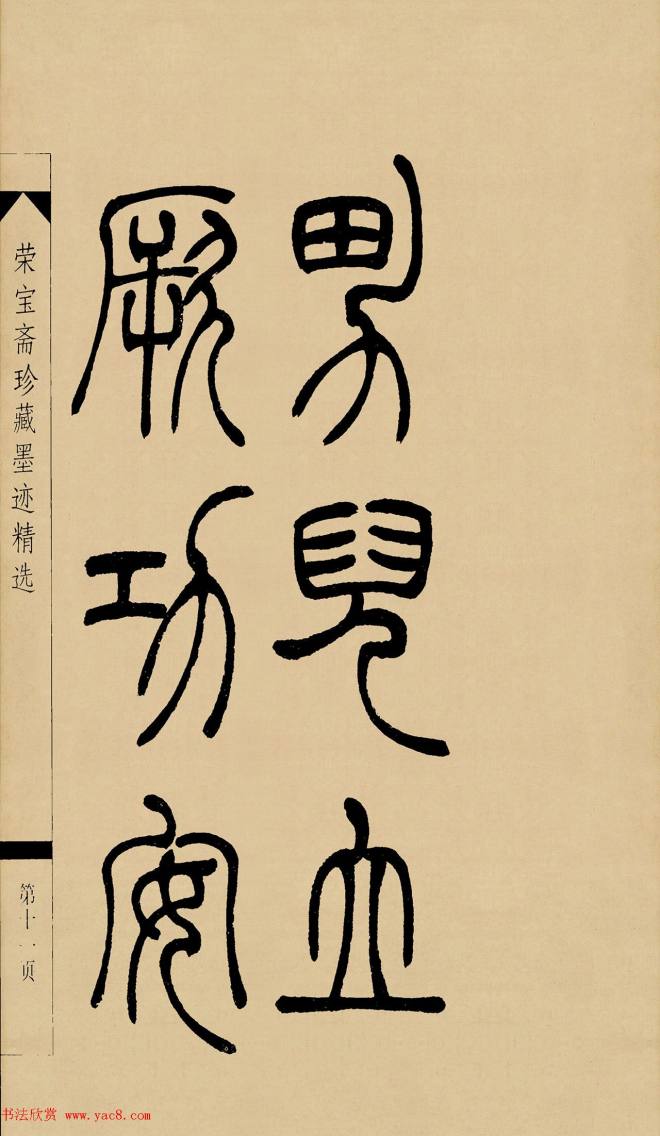 男兒立
厥功安
荣宝斋珍藏墨迹精选
第十一页
书法欣赏 www.yac8.com